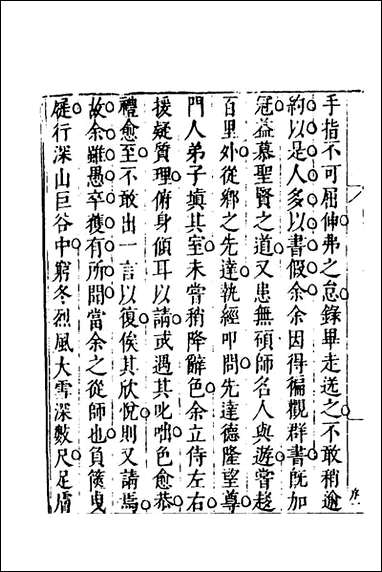 手指不可屈伸弗之怠錄畢走送之不敢稍逾
約以是人多以書假余余因得徧觀群書既加
冠益慕聖賢之道又患無碩師名人與遊嘗趍
百里外從鄉之先達執經叩問先達德隆望尊
門人弟子塡其室未嘗稍降辭色余立侍左右
援疑質理俯身傾耳以請或遇其叱咄色愈恭
禮愈至不敢出一言以復俟其欣悅則又請焉
故余雖愚卒獲有所聞當余之從師也負篋曳
屣行深山巨谷中窮冬烈風大雪深數尺足膚
序